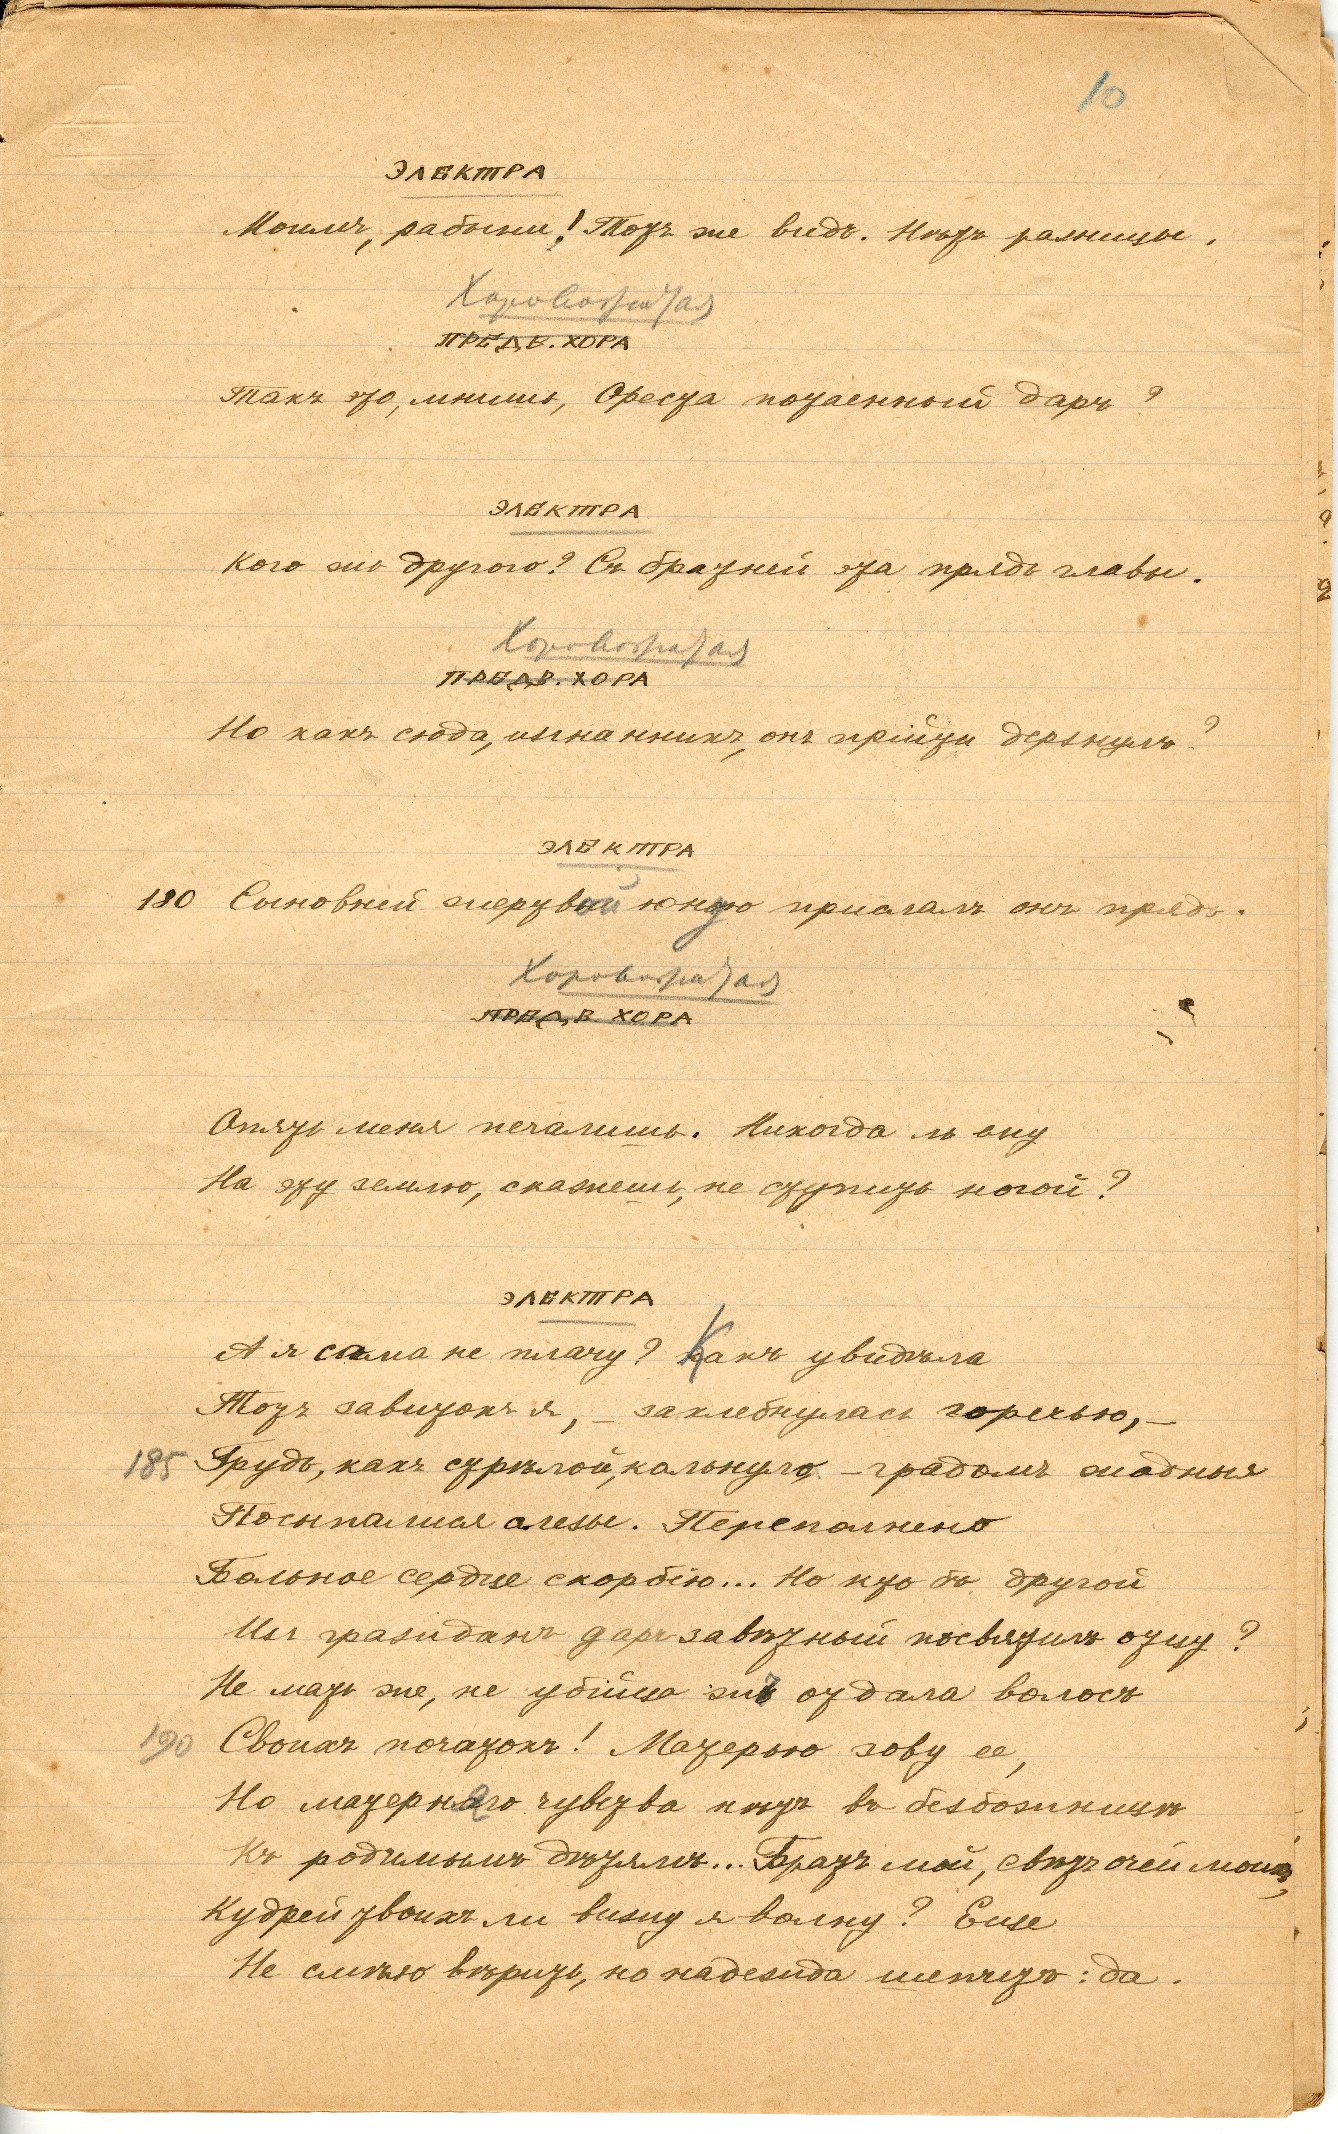 10
ЭЛЕКТРА
Моимъ, рабыни! Тотъ же видъ. Нѣтъ разницы.
Хоровожатая
ПРЕДВ. ХОРА
Такъ это, мнишь, Ореста потаенный даръ?
ЭЛЕКТРА
Кого жъ другого? Съ братней эта прядь главы.
Хоровожатая
ПРЕДВ. ХОРА
Но какъ сюда, изгнанникъ, онъ прійти дерзнулъ?
ЭЛЕКТРА
180 Сыновней жертвой юную прислалъ онъ прядь.
Хоровожатая
ПРЕДВ ХОРА
Опять меня печалишь. Никогда ль ему
На эту землю, скажешь, не ступить ногой?
ЭЛЕКТРА
А я сама не плачу? Какъ увидѣла
Тотъ завитокъ я, – захлебнулась горечью, –
185 Грудь, какъ стрѣлой, кольнуло – градомъ жадныя
Посыпались слезы. Переполнено
Больное сердце скорбію... Но кто бъ другой
Изъ гражданъ даръ завѣтный посвятилъ отцу?
Не мать же, не убійца жъ отдала волосъ
190 Своихъ початокъ! Матерью зову ее,
Но матерняго чувства нѣтъ въ безбожницѣ
Къ родимымъ дѣтямъ... Братъ мой, свѣтъ очей моихъ,
Кудрей твоихъ ли вижу я волну? Еще
Не смѣю вѣрить, но надежда шепчетъ: да.